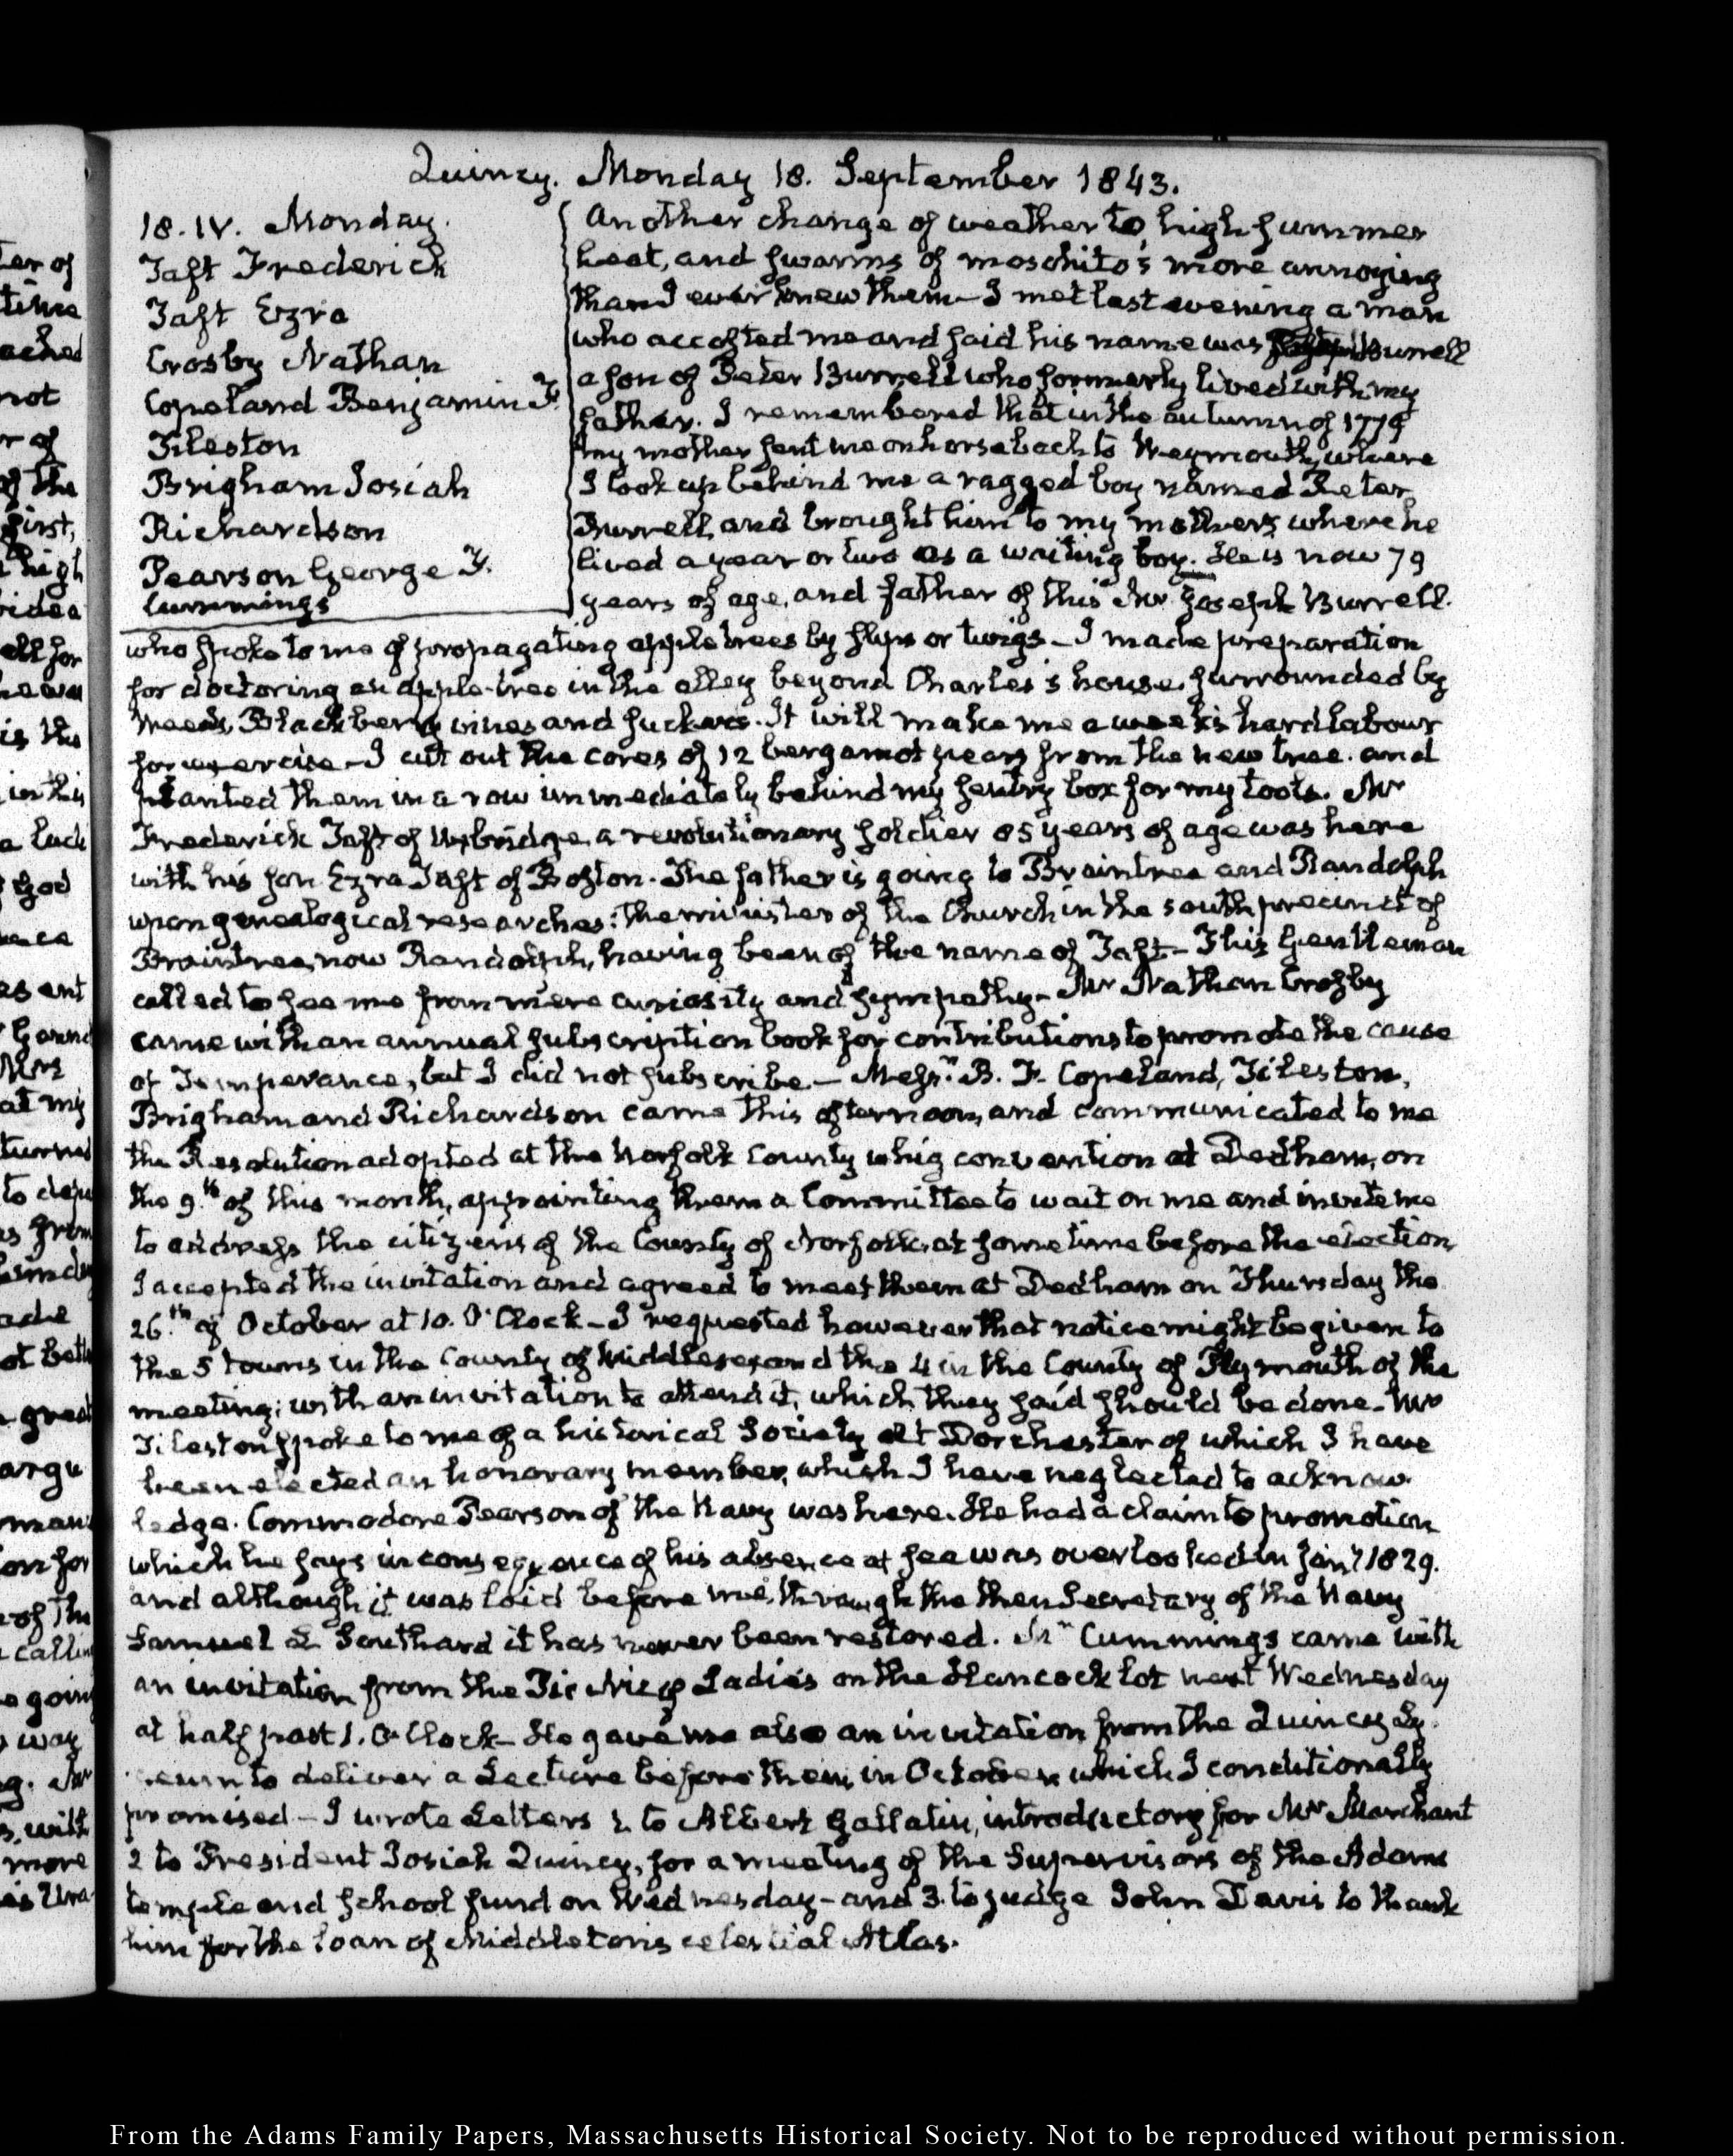 Quincy. Monday 18. September 1843.
18. IV. Monday.
Taft Frederick
Taft Ezra
Crosby Nathan
Copeland Benjamin F.
Tileston
Brigham Josiah
Richardson
Pearson George F.
Cummings
Another change of weather to high summer
heat, and swarms of moschito's more annoying
than I ever knew them — I met last evening a man
who accosted me and said his name was Burrell
a son of Peter Burrell who formerly lived with my
father. I remembered that in the autumn of 1779
my mother sent me on horseback to Weymouth, where
I took up behind me a ragged boy named Peter
Burrell, and brought him to my mothers where he
lived a year or two as a waiting boy. He is now 79
years of age, and father of this Mr Joseph Burrell.
who spoke to me of propagating apple trees by slips or twigs — I made preparation
for doctoring an apple-tree in the alley beyond Charles's house, surrounded by
weeds, Blackberry vines and suckers. It will make me a week's hard labour
for exercise — I cut out the cores of 12 bergamot pears from the new tree. and
planted them in a row immediately behind my sentry box for my tools. Mr
Frederick Taft of Uxbridge, a revolutionary soldier 85 years of age was here
with his son Ezra Taft of Boston. The father is going to Braintree and Randolph
upon genealogical researches: the minister of the Church in the south precinct of
Braintree, now Randolph, having been of the name of Taft — This Gentleman
called to see me from mere curiosity and sympathy — Mr Nathan Crosby
came with an annual subscription book for contributions to promote the cause
of Temperance, but I did not subscribe — Messrs. B. F. Copeland, Tileston,
Brigham and Richardson came this afternoon, and communicated to me
the Resolution adopted at the Norfolk County whig convention at Dedham, on
the 9th of this month, appointing them a Committee to wait on me and invite me
to address the citizens of the County of Norfolk, at some time before the election
I accepted the invitation and agreed to meet them at Dedham on Thursday the
26th of October at 10. O'Clock — I requested however that notice might be given to
the 5 towns in the County of Middlesex, and the 4 in the County of Plymouth of the
meeting; with an invitation to attend it, which they said should be done — Mr
Tileston spoke to me of a historical Society at Dorchester of which I have
been elected an honorary member, which I have neglected to acknow
ledge. Commodore Pearson of the Navy was here. He had a claim to promotion
which he says in consequence of his absence at sea was overlooked in Jany 1829.
and although it was laid before me, through the then Secretary of the Navy
Samuel L Southard it has never been restored. Mr Cummings came with
an invitation from the Pic Nic of Ladies on the Hancock lot next Wednesday
at half past 1. O'Clock — He gave me also an invitation from the Quincy Ly-
ceum to deliver a Lecture before them, in October which I conditionally
promised — I wrote Letters 1. to Albert Gallatin, introductory for Mr Marchant
2 to President Josiah Quincy, for a meeting of the Supervisors of the Adams
temple and school fund on Wednesday — and 3. to Judge John Davis to thank
him for the loan of Middleton's celestial Atlas.
From the Adams Family Papers, Massachusetts Historical Society. Not to be reproduced without permission.